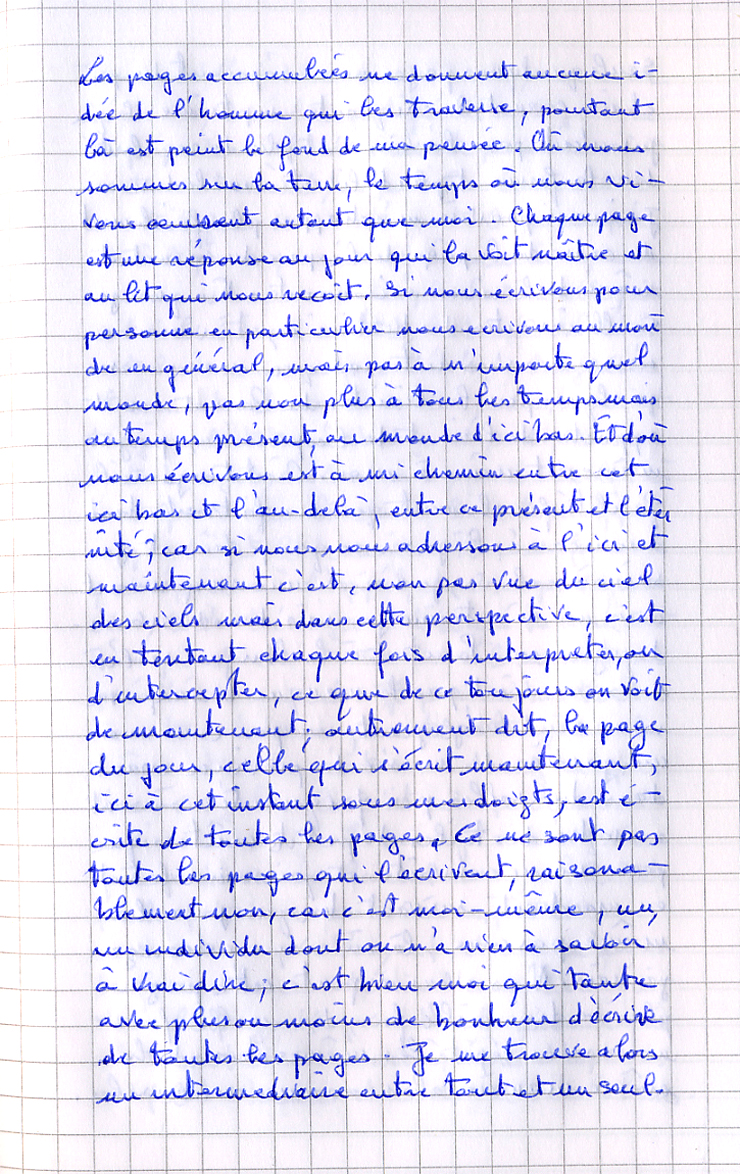 Les pages accumulées ne donnent aucune i-
dée de l'homme qui les traverse, pourtant
là est peint le fond de ma pensée. Où nous
sommes sur la terre, le temps où nous vi-
vons autant que moi. Chaque page
est une réponse au jour qui la voit naître et
au lit qui nous reçoit. Si nous écrivons pour
personne en particulier nous ecrivons au mon
de en général, mais pas à n'importe quel
monde, pas non plus à tous les temps mais
au temps présent, au monde d'ici bas. Et d'où
nous écrivons est à mi chemin entre cet
ici bas et l'au-delà, entre ce présent et l'éter
nité; car si nous nous adressons à l'ici et
maintenant c'est, non pas vue du ciel
des ciels mais dans cette perspective, c'est
en tentant chaque fois d'interpreter, ou
d'intercepter, ce que de ce toujours on voit
de maintenant; autrement dit, la page
du jour, celle qui s'écrit maintenant,
ici à cet instant sous mes doigts, est é-
crite de toutes les pages. Ce ne sont pas
toutes les pages qui l'écrivent, raisona-
blement non, car c'est moi-même, un,
un individu dont on n'a rien à savoir
à vrai dire; c'est bien moi qui tente
avec plus ou moins de bonheur d'écrire
de toutes les pages. Je me trouve alors
un intermediaire entre tout et un seul.